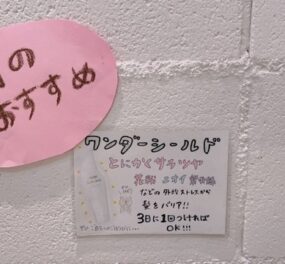 の
おすすめ
ワンダーシールド
とにかくサラツヤ
花粉 ニオイ 紫外線
などの外的ストレスから
髪をバリア!!
3日に1回つければ
OK!!!